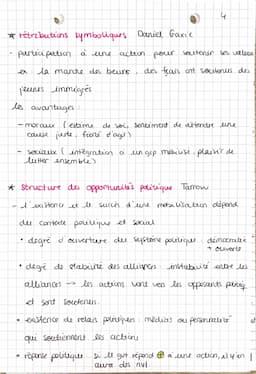 4
* rétributions symboliques Daniel Gaxie
- participation à une action pour soutenir ses valeurs
ex la marche des beurs, des frçais ont soutenus des
jeunes immigrés
les avantages :
- moraux (estime de soi, sentiment de défendre une
cause juste, fierté d'agir)
- sociaux (intégration à un grp mobilisé, plaisir de
lutter ensemble)
* Structure des opportunités politique Tarrow
- l'existence et le succès d'une mobilisation dépend
du contexte politique et social
• degré d'ouverture du système politique : démocratie
+ ouverte
• degré de stabilité des alliances : instabilité entre les
alliances → les actions vont vers les opposants
et sont soutenus.
• existence de relais politiques : médias ou personnalité
qui soutiennent les actions
• réponse politique si le gvt répond ⊕ à une action, il y en
aura des nvl